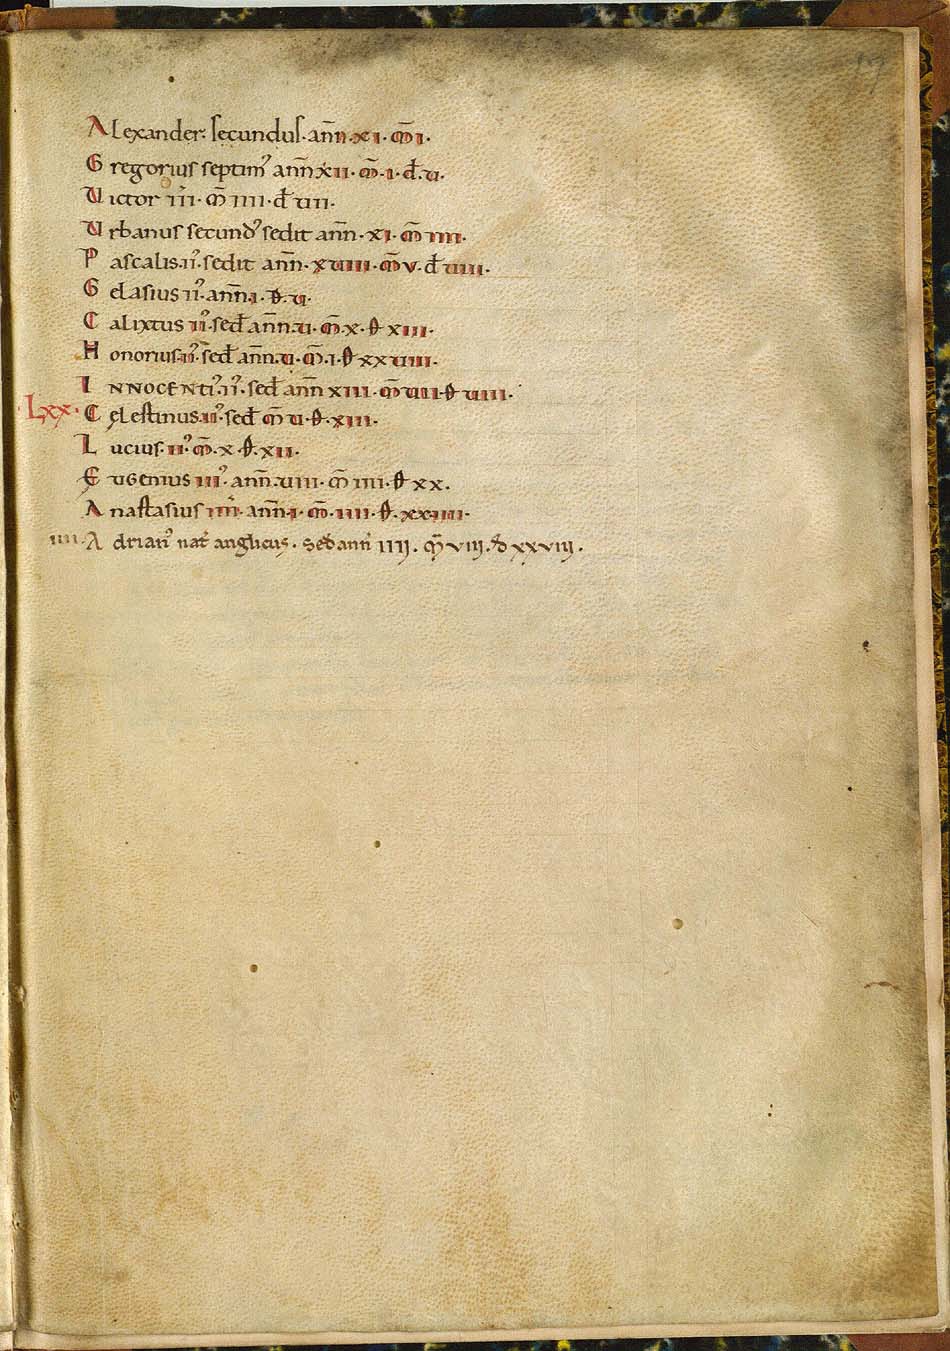 Alexander secundus. ann̄. xi. m̄ i.
Gregorius septim᾽ ann̄ xii. m̄. i. d̄. u.
Uictor iii. m̄ iiii. d̄ uiii.
Urbanus secund᾽ sedit ann̄. xi. m̄ iiii.
Pascalis. ii᾽. sedit ann̄. xuiiii. m̄ v. d̄ uiiii.
Gelasius ii᾽. ann̄. i. d̄. u.
Calixtus ii᾽. sed̄ ann̄. u. m̄. x. d̄ xiii.
Honorius. ii᾽. sed̄ ann̄. u. m̄. i. d̄ xxuiiii.
INNOCENTI᾽. ii᾽. sed̄ ann̄ xiii. m̄ uii. d̄ uiiii.
Lxx. Celestinus. ii᾽. sed̄ m̄ u. d̄. xiii.
Lucius. ii᾽. m̄. x. d̄. xii.
Eugenius iii᾽. ann̄. uiii. m̄ iiii. d̄ xx.
Anastasius iiii. ann̄. i. m̄. iiii. d̄. xxiiii.
iiii. Adrian᾽ nat᾽ anglicus. Sed ann̄ iiij. m̄ viij. d̄ xxviij.